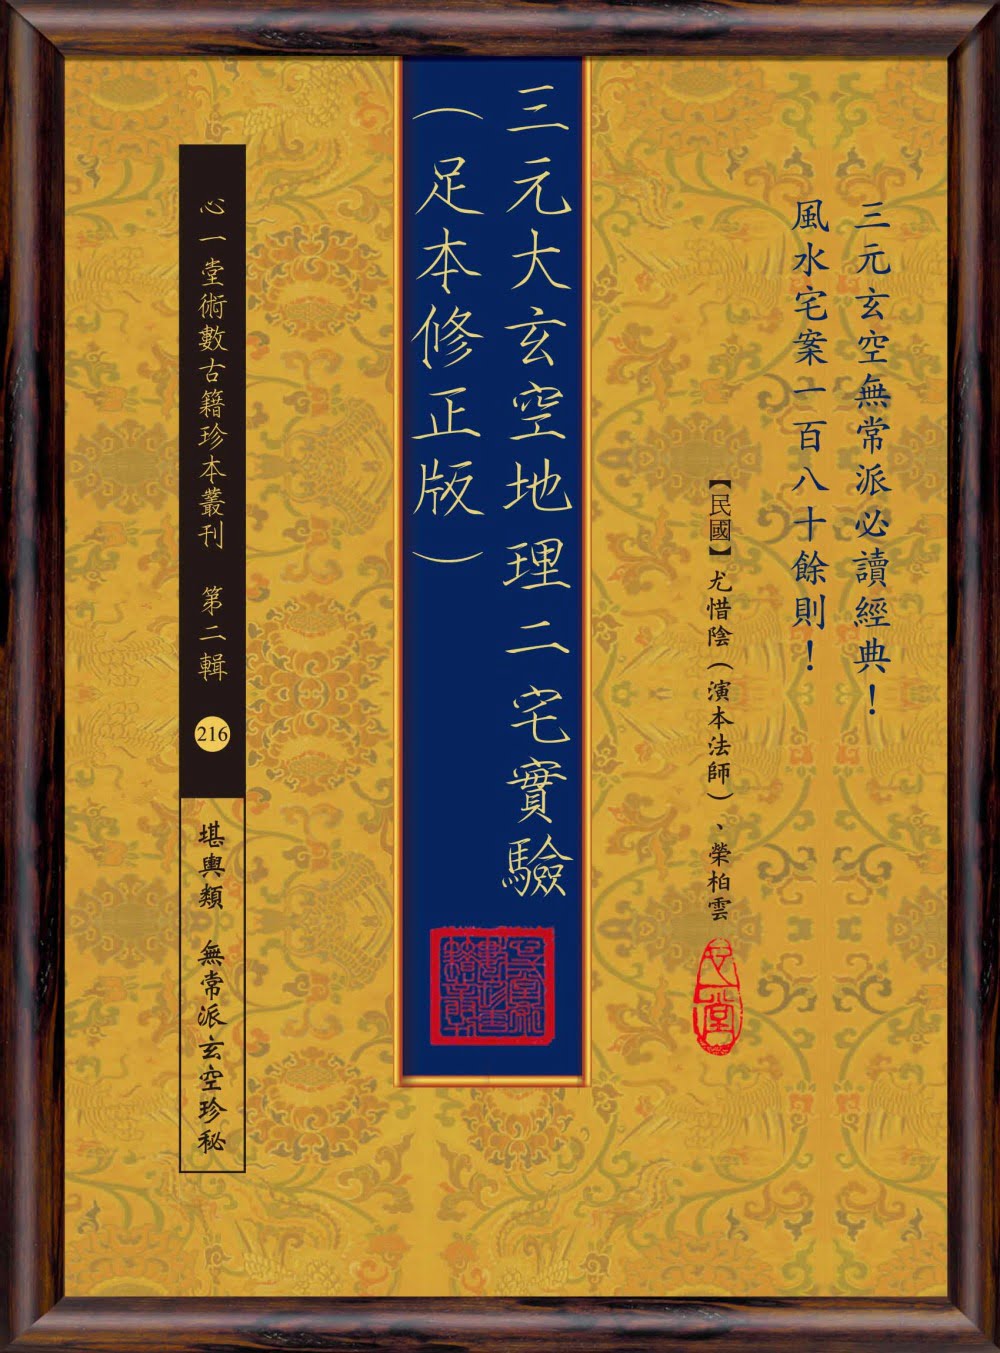 三元玄空無常派必讀經典！
風水宅案一百八十餘則！
【民國】尤惜陰（演本法師）、榮柏雲
三元大玄空地理二宅實驗
（足本修正版）
心一堂術數古籍珍本叢刊 第二輯 216
堪輿類 無常派玄空珍秘